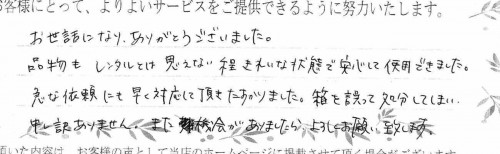 お客様にとって、よりよいサービスをご提供できるように努力いたします。
お世話になり、ありがとうございました。
品物も レンタルとは 思えない 程 きれいな 状態で 安心して 使用できました。
急な依頼にも 早く対応して 頂き たすかりました。 箱を誤って 処分してしまい
申し訳ありません。 また 機会が ありましたら よろしくお願い致します。
頂いた内容は、お客様の声として当店のホームページに掲載させて頂く場合がございます